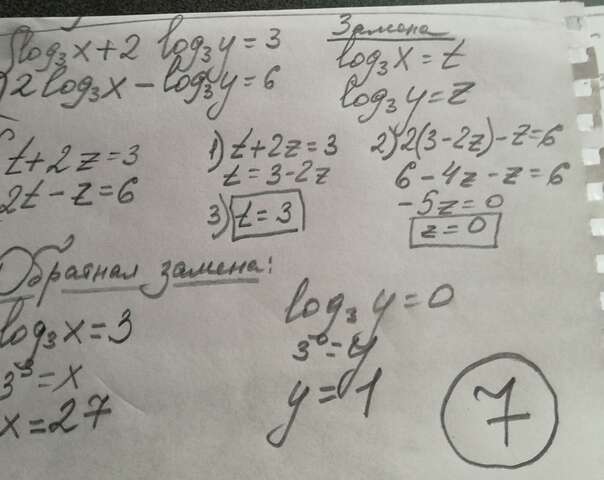 log₃x + 2 log₃y = 3
2log₃x - log₃y = 6
Замена
log₃x = t
log₃y = z
t + 2z = 3
2t - z = 6
1) t + 2z = 3
t = 3 - 2z
2) 2(3 - 2z) - z = 6
6 - 4z - z = 6
-5z = 0
z = 0
3) t = 3
Обратная замена:
log₃x = 3
3³ = x
x = 27
log₃y = 0
3⁰ = y
y = 1
7